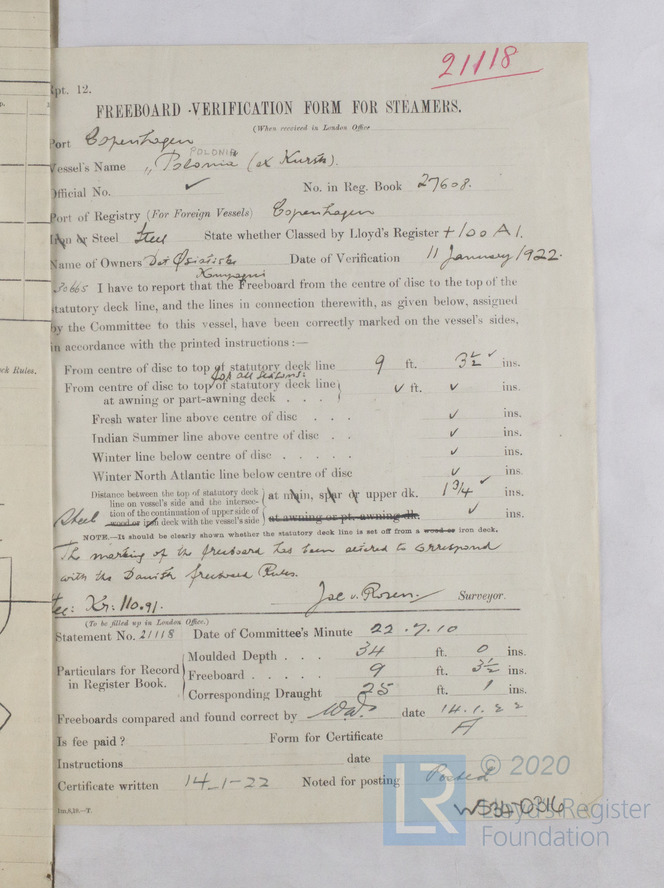 21118
Rpt. 12.
FREEBOARD VERIFICATION FORM FOR STEAMERS.
(When received in London Office
Port Copenhagen
POLONIA
Vessel's Name "Polonia (ex Kursk).
Official No. ✓ No. in Reg. Book 27608.
Port of Registry (For Foreign Vessels) Copenhagen
Iron or Steel Steel State whether Classed by Lloyd's Register +100 A1.
Name of Owners Det Østasiatiske Date of Verification 11 January 1922.
Kompagni
30665 I have to report that the Freeboard from the centre of disc to the top of the
statutory deck line, and the lines in connection therewith, as given below, assigned
by the Committee to this vessel, have been correctly marked on the vessel's sides,
in accordance with the printed instructions:—
ck Rules.
From centre of disc to top of statutory deck line 9 ft. 3½ ✓ ins.
for all seasons:
From centre of disc to top of statutory deck line ✓ ft. ✓ ins.
at awning or part-awning deck . . .
Fresh water line above centre of disc . . . ✓ ins.
Indian Summer line above centre of disc . . ✓ ins.
Winter line below centre of disc . . . . . ✓ ins.
Winter North Atlantic line below centre of disc ✓ ins.
Distance between the top of statutory deck
line on vessel's side and the intersec- at main, spar or upper dk. 1¾ ✓ ins.
tion of the continuation of upper side of
Steel wood or iron deck with the vessel's side at awning or pt. awning dk. ✓ ins.
NOTE.—It should be clearly shown whether the statutory deck line is set off from a wood or iron deck.
The marking of the freeboard has been altered to correspond
with the Danish freeboard Rules.
Fee: Kr: 110.91. Jac v. Rosen. Surveyor.
(To be filled up in London Office.)
Statement No. 21118 Date of Committee's Minute 22.7.10
Moulded Depth . . . 34 ft. 0 ins.
Particulars for Record Freeboard . . . . . 9 ft. 3½ ins.
in Register Book.
Corresponding Draught 25 ft. 1 ins.
Freeboards compared and found correct by date 14.1.22
Is fee paid? Form for Certificate A
Instructions date
Certificate written 14-1-22 Noted for posting Posted
1m,8,19.—T.
W534-0316
LR © 2020
Lloyd's Register
Foundation